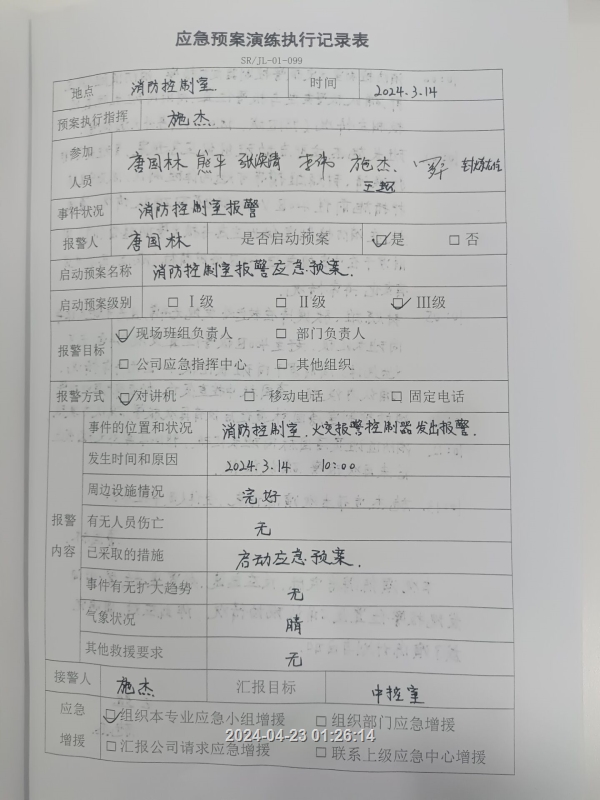 应急预案演练执行记录表
SR/JL-01-099
地点 消防控制室. 时间 2024.3.14
预案执行指挥 施杰.
参加人员 唐国林 熊平 李伟 施杰.
事件状况 消防控制室报警
报警人 唐国林 是否启动预案 ☑是 □否
启动预案名称 消防控制室报警应急预案.
启动预案级别 □Ⅰ级 □Ⅱ级 ☑Ⅲ级
报警目标 ☑现场班组负责人 □部门负责人
□公司应急指挥中心 □其他组织
报警方式 ☑对讲机 □移动电话 □固定电话
报警内容
事件的位置和状况 消防控制室.火灾报警控制器发出报警.
发生时间和原因 2024.3.14 10:00
周边设施情况 完好
有无人员伤亡 无
已采取的措施 启动应急预案.
事件有无扩大趋势 无
气象状况 晴
其他救援要求 无
接警人 施杰 汇报目标 中控室
应急增援 ☑组织本专业应急小组增援 □组织部门应急增援
□汇报公司请求应急增援 □联系上级应急中心增援
2024-04-23 01:26:14